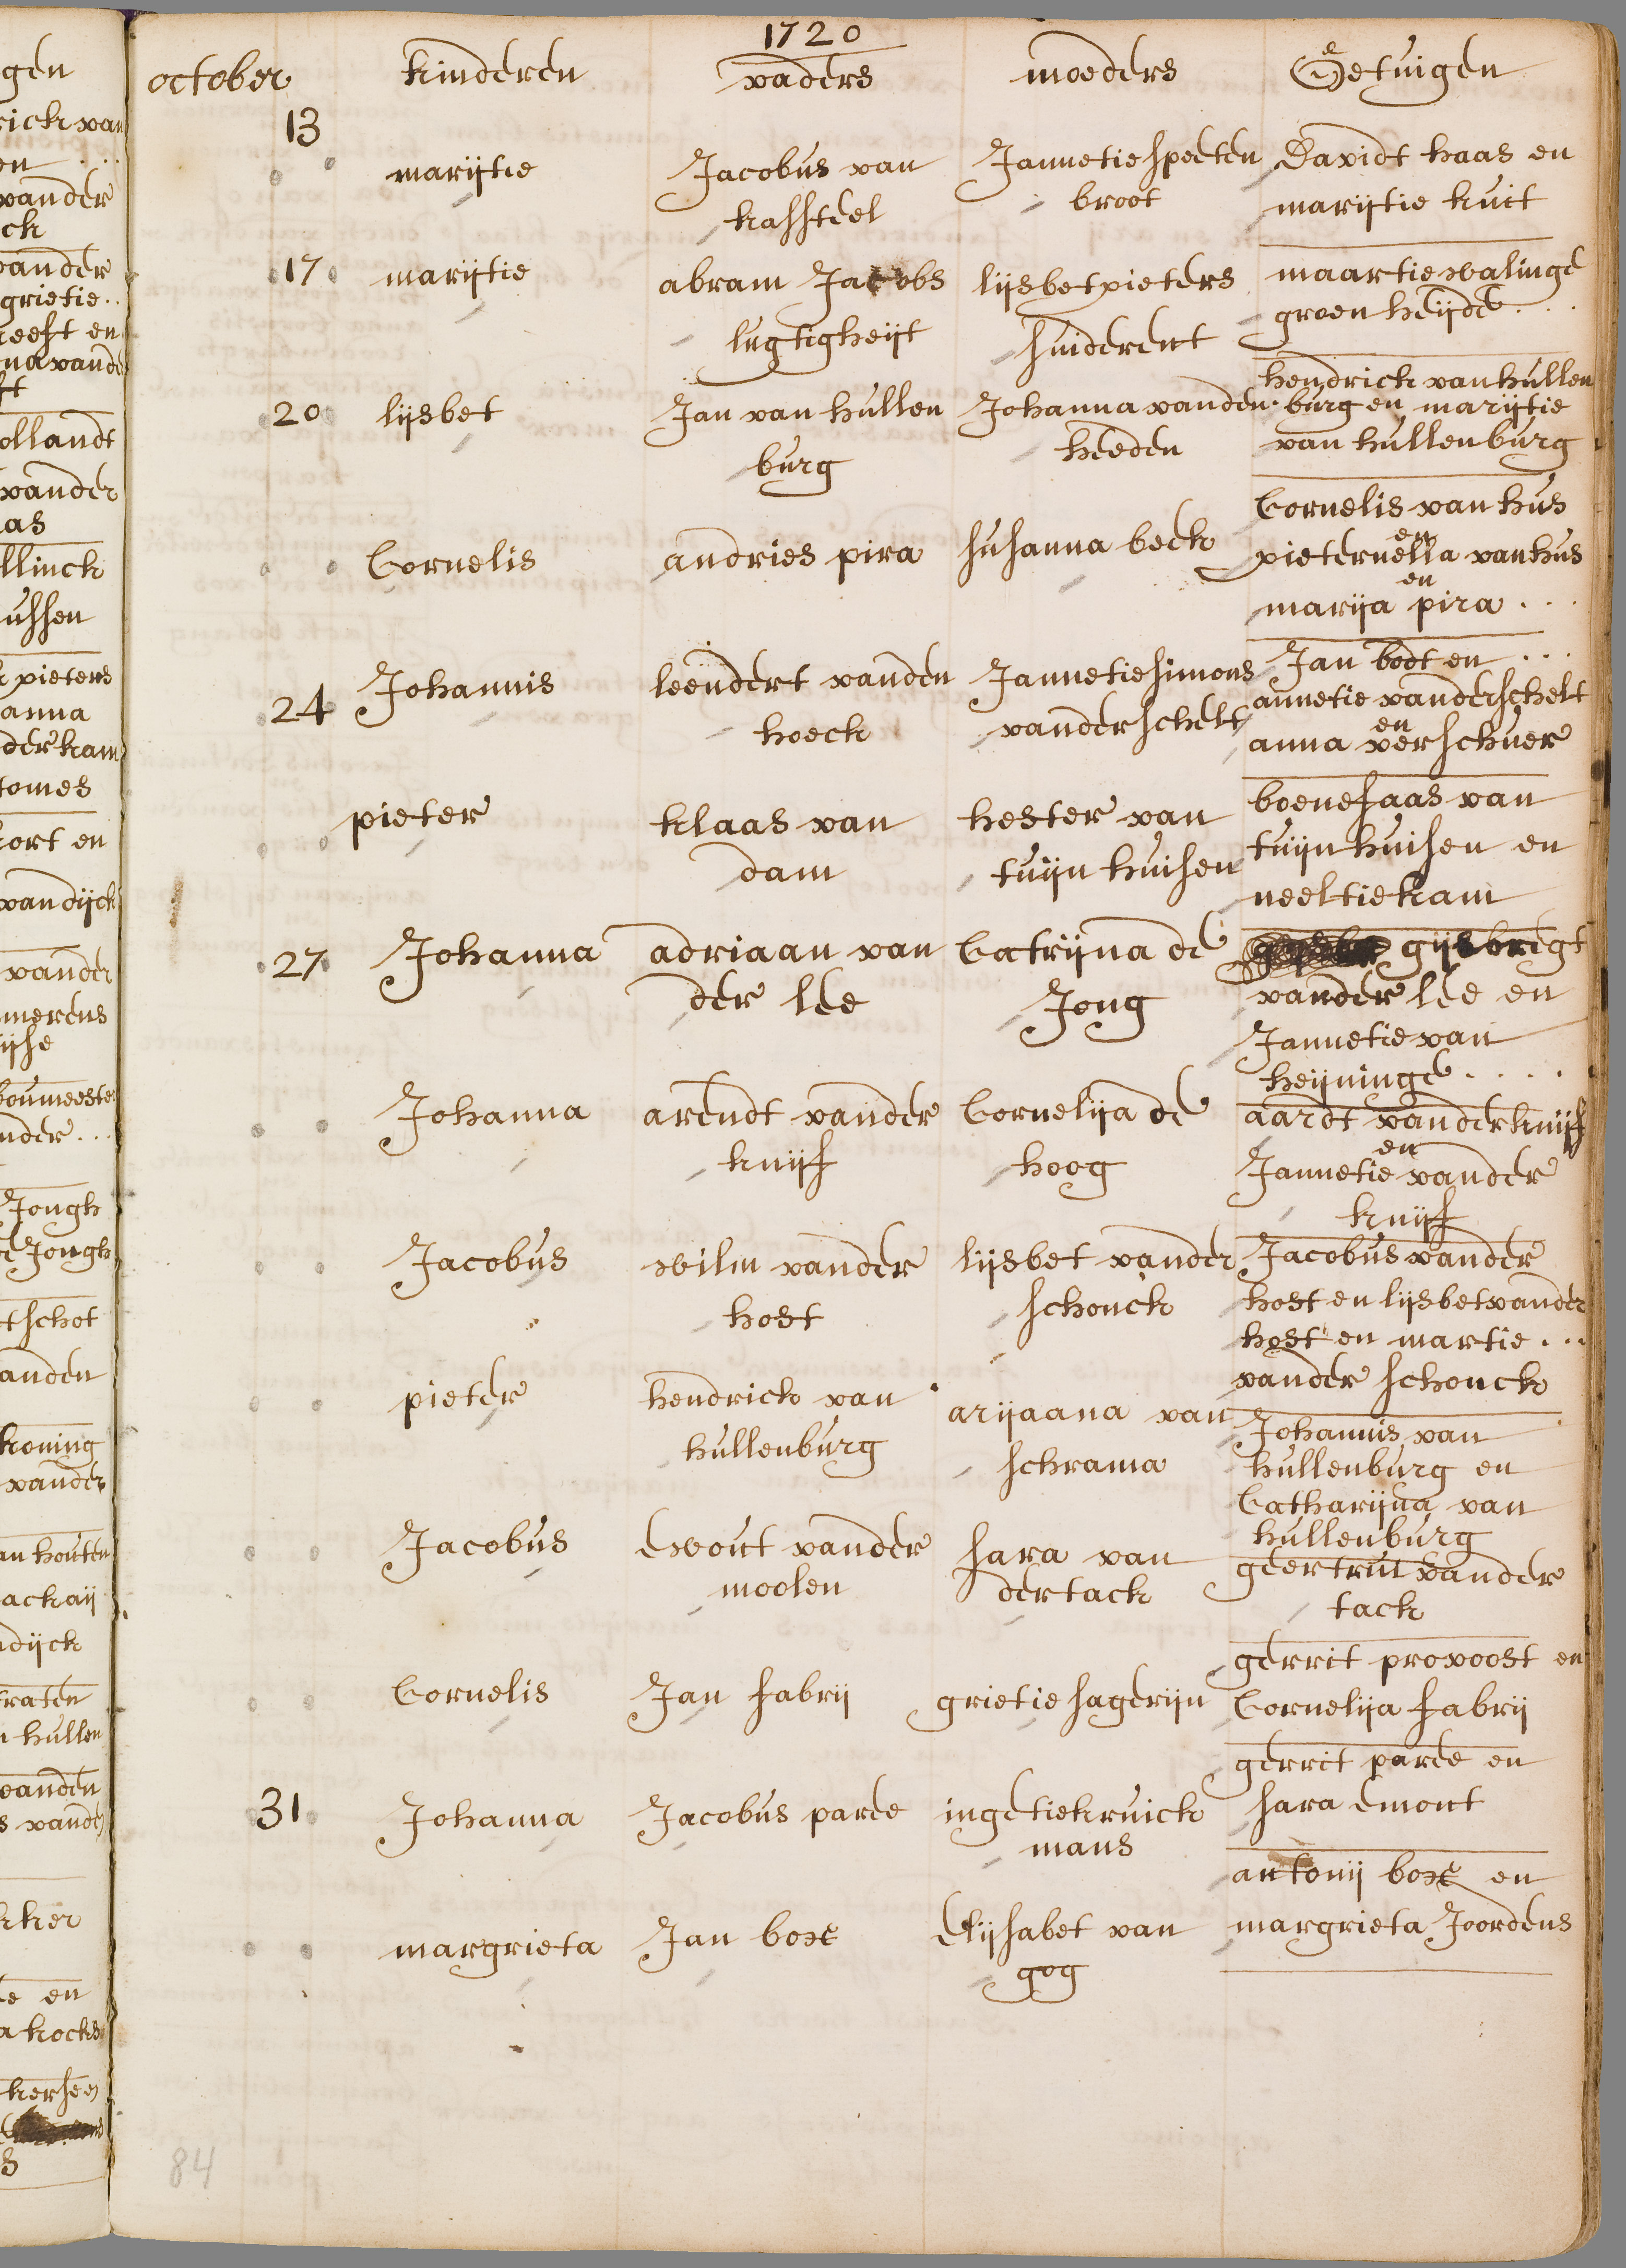 1720
october kinderen vaders moeders Getuigen
13
marijtie Jacobus van Jannetie speeten Davidt haas en
kassteel broot marijtie kuit
17 marijtie abram Jacobs lijsbet pieters maartie walinge
lugtigheijt suiderent groen heijde . .
hendrick van hullen
20 lijsbet Jan van hullen Johanna vanden burg en marijtie
burg heeden van hullenburg
Cornelis van hus
en
Cornelis andries pira susanna beck pieternella van hus
en
marija pira . . .
Johannis leendert vanden Jannetie simons Jan bodt en . . .
24 hoeck vander schelt annetie vander schelt
en
anna verschuer
pieter klaas van hester van boenefaas van
dam tuijn huisen tuijn huisen en
neeltie kam
27 Johanna adriaan van Catrijna de gijsbregt
der lee Jong vander lee en
Jannetie van
heijninge . . . .
Johanna arendt vander Cornelija de aardt vander knijf
en
knijf hoog Jannetie vander
knijf
Jacobus wilm vander lijsbet vander Jacobus vander
host schonck host en lijsbet vander
host en martie . . .
vander schonck
pieter hendrick van arijaana van Johannis van
hullenburg schrama hullenburg en
Catharijna van
hullenburg
Jacobus ewout vander sara van geertrut vander
moolen der tack tack
gerrit provoost en
Cornelis Jan fabrij grietie sagerijn Cornelija fabrij
gerrit paree en
31 Johanna Jacobus paree ingetie kruick sara emont
mans
antonij box en
margrieta Jan box elijsabet van margrieta Joordens
gog
84